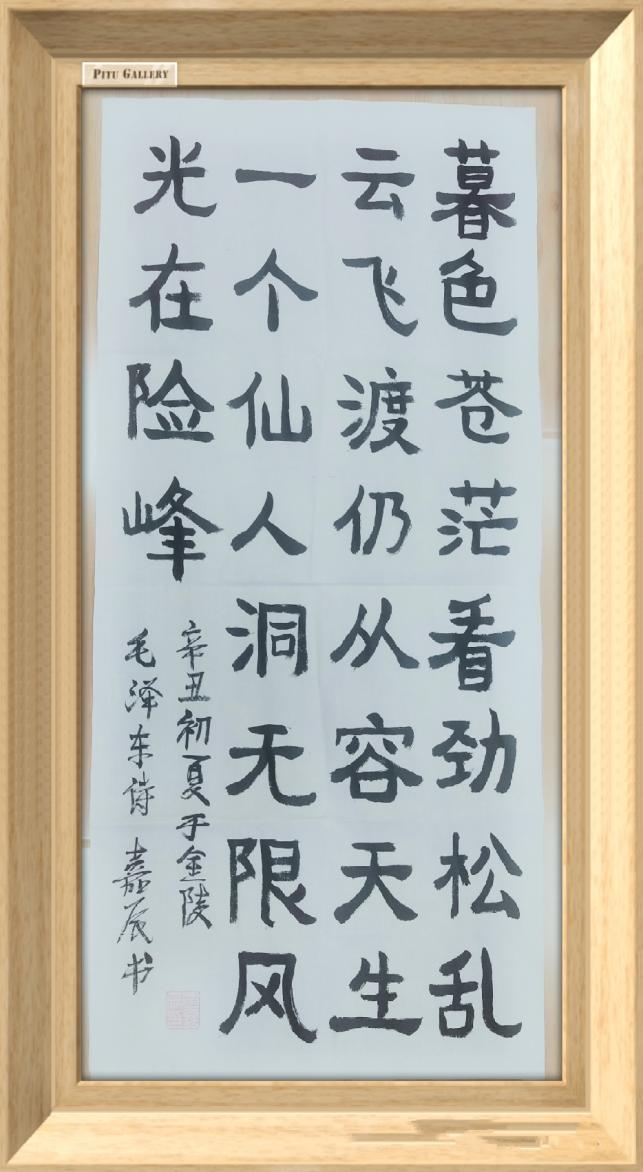 PITU GALLERY
暮色苍茫看劲松乱
云飞渡仍从容天生
一个仙人洞无限风
光在险峰
辛丑初夏于金陵
毛泽东诗 嘉辰书